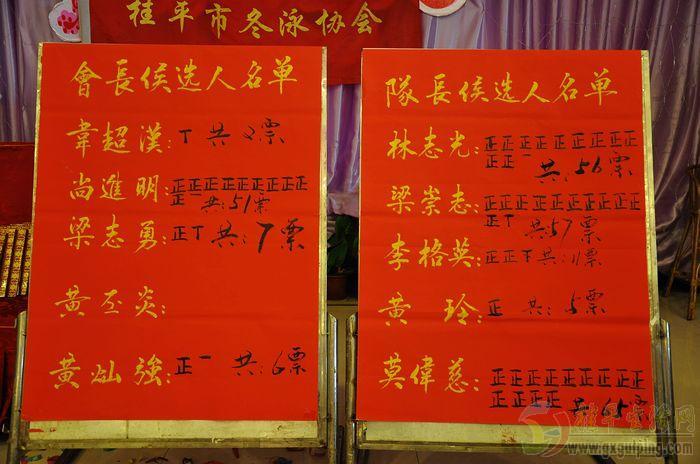 桂平市冬泳协会
會長候选人名单
韋超漢：丅 共2票
尚進明：正正正正正正正正正
正一 共:51票
梁志勇：正丅 共:7票
黃丕炎：
黃灿強：正一 共:6票
隊長侯选人名单
林志光：正正正正正正正正正
正正一 共:56票
梁崇志：正正正正正正正正正
正丅 共57票
李格英：正正
黃玲：正 共:5票
莫偉慈：正正正正正正正正正
正正正正 共:65票
桂平金价网
www.gxguiping.com